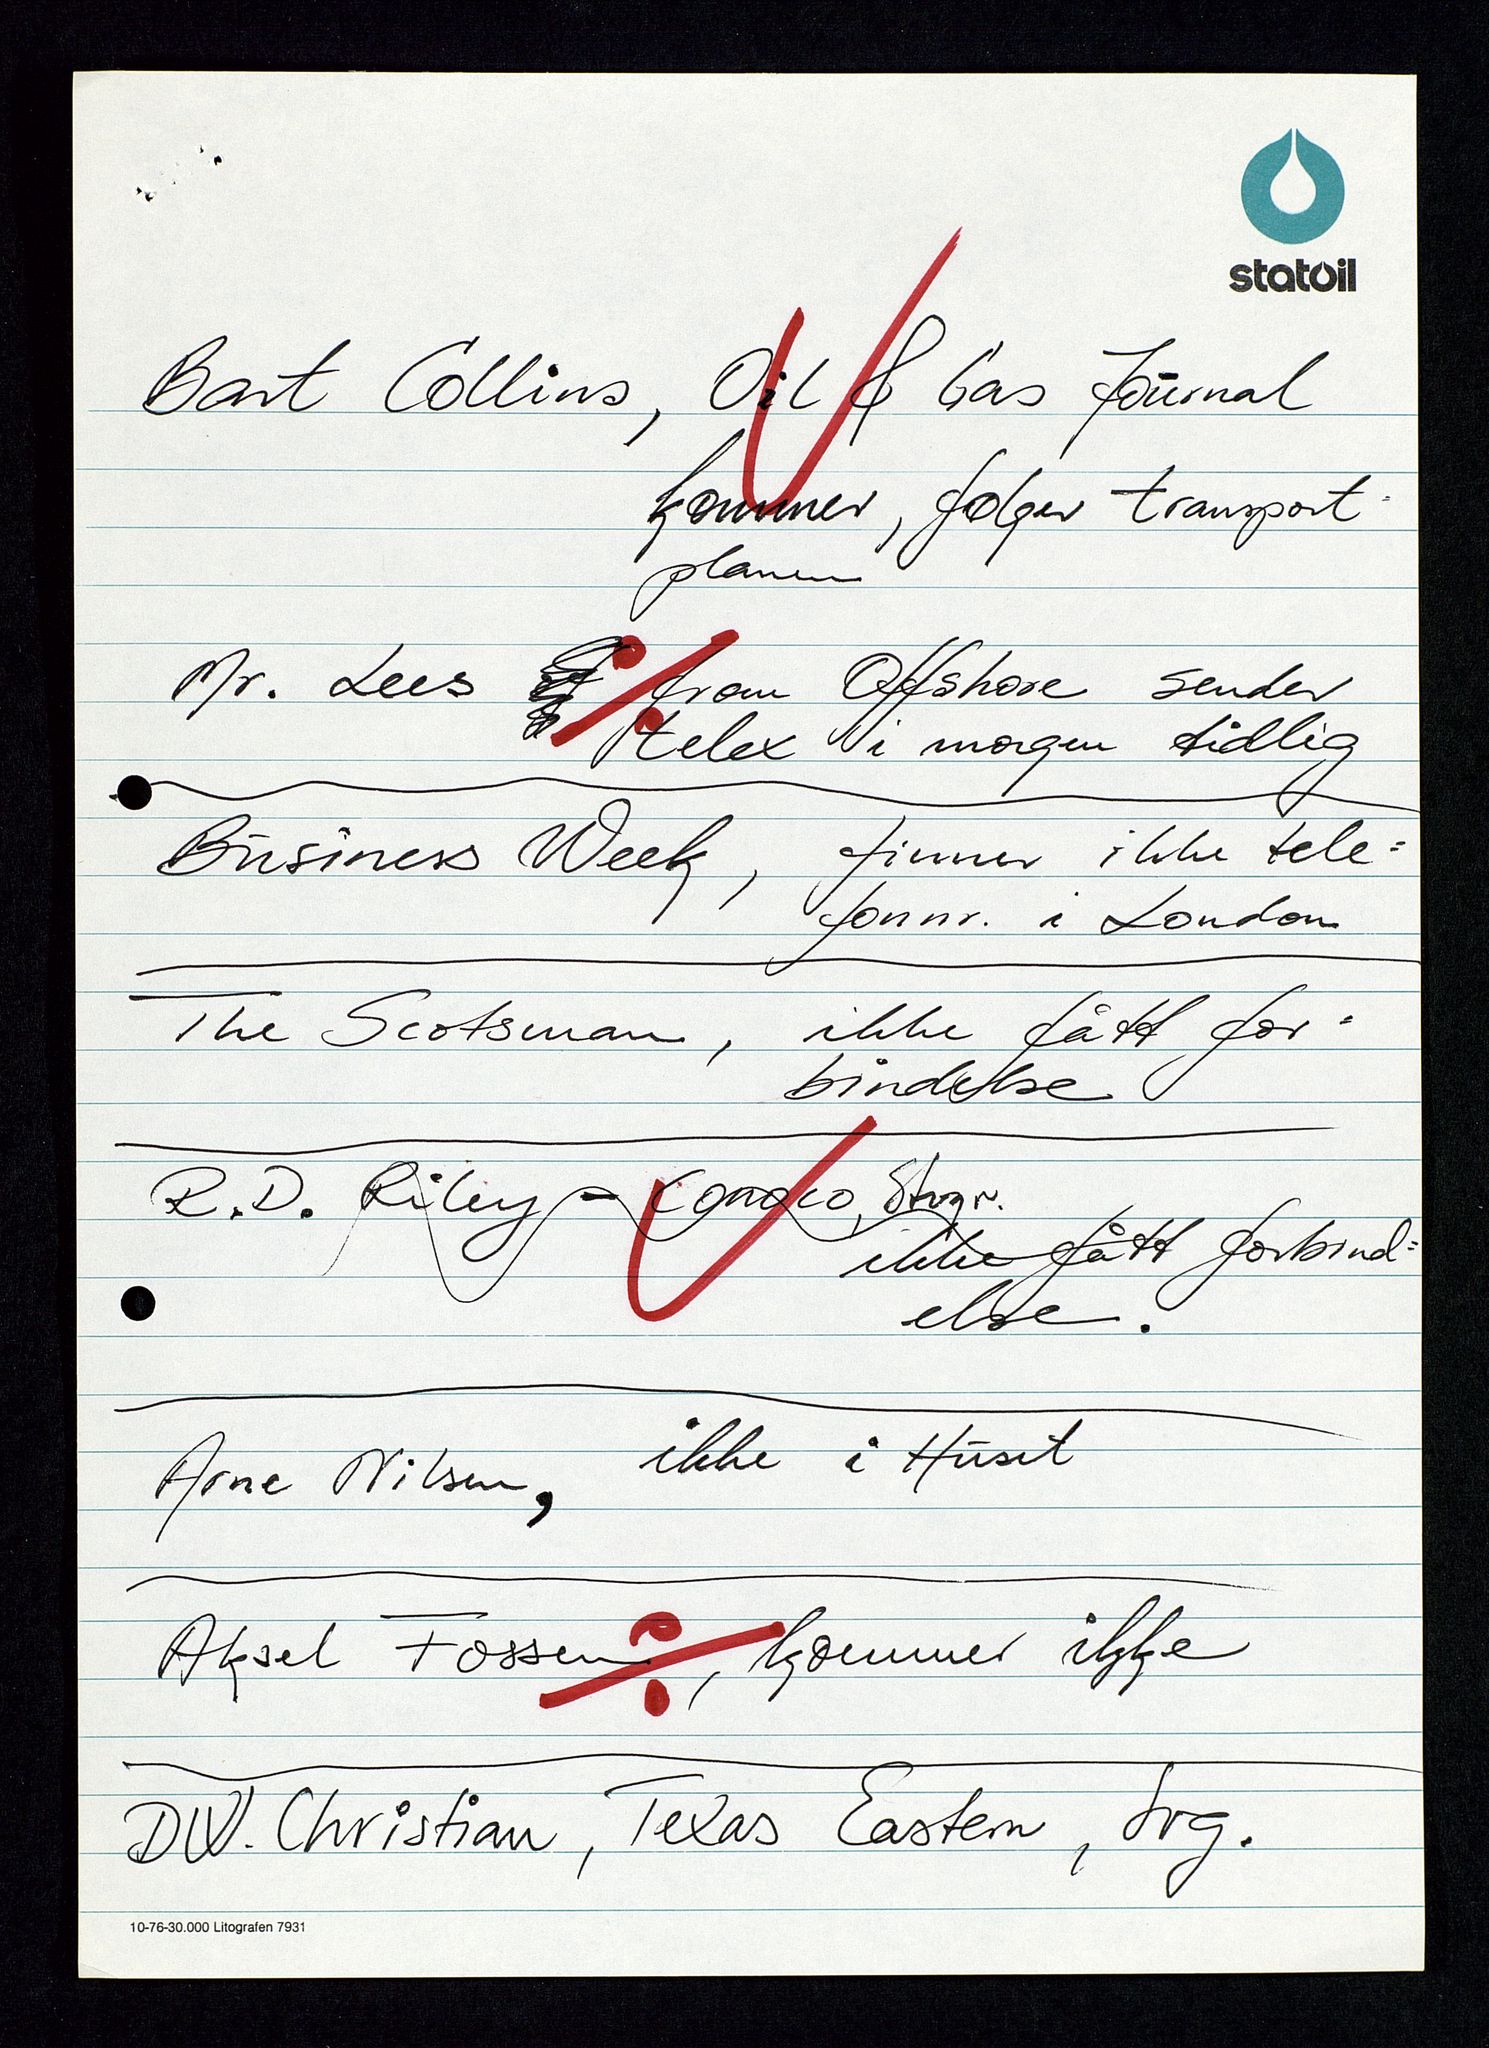 statoil
Bart Collins, Oil & Gas Journal
kommer, følger transport-
planen
Mr. Lees from Offshore sender
telex i morgen tidlig
Business Week, finner ikke tele=
fonnr. i London
The Scotsman, ikke fått for=
bindelse
R.D. Riley - Conoco, Stvgr.
ikke fått forbind=
else.
Arne Nilsen, ikke i Huset
Aksel Fossen, kommer ikke
DW. Christian, Texas Eastern, Svg.
10-76-30.000 Litografen 7931